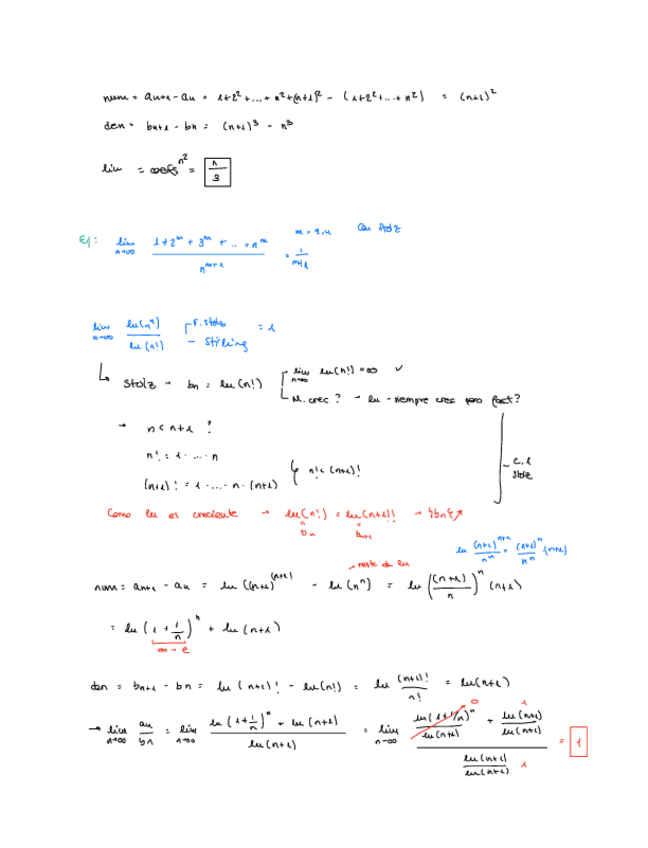 num = aₙ₊₁ - aₙ = 1+2²+...+n²+(n+1)² - (1+2²+...+n²) = (n+1)²
den = bₙ₊₁ - bₙ = (n+1)³ - n³
lim = coefs n² = 1/3
Ej: lim n→∞ (1+2ᵐ+3ᵐ+...+nᵐ)/nᵐ⁺¹ = 1/(m+1) m = 3,4 Con Stolz
lim n→∞ ln(nⁿ)/ln(n!) = 1
F. Stolz
- Stirling
Stolz → bₙ = ln(n!)
lim n→∞ ln(n!) = ∞ ✓
M. crec? → ln → siempre crec pero fact?
→ n < n+1 ?
n! = 1·...·n
(n+1)! = 1·...·n·(n+1)
n! < (n+1)!
C.1 Stolz
Como ln es creciente → ln(n!) < ln(n+1)! → {bₙ}↗
bₙ bₙ₊₁
ln (n+1)ⁿ⁺¹/nⁿ = (n+1)ⁿ/nⁿ (n+1)
→ resta de ln
num = aₙ₊₁ - aₙ = ln((n+1)⁽ⁿ⁺¹⁾) - ln(nⁿ) = ln((n+1)/n)ⁿ(n+1)
= ln(1+1/n)ⁿ + ln(n+1)
∞ → e
den = bₙ₊₁ - bₙ = ln(n+1)! - ln(n!) = ln (n+1)!/n! = ln(n+1)
→ lim n→∞ aₙ/bₙ = lim n→∞ (ln(1+1/n)ⁿ + ln(n+1))/ln(n+1) = lim n→∞ (ln(1+1/n)ⁿ/ln(n+1) + ln(n+1)/ln(n+1))/(ln(n+1)/ln(n+1)) = 1
0 1 1